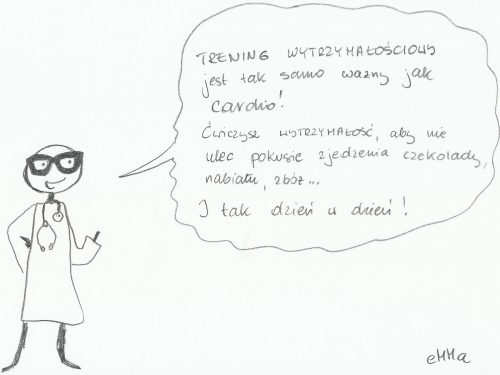 TRENING WYTRZYMAŁOŚCIOWY
jest tak samo ważny jak
cardio!
Ćwiczysz WYTRZYMAŁOŚĆ, aby nie
ulec pokusie zjedzenia czekolady,
nabiału, zbóż...
I tak dzień w dzień!
eMMa